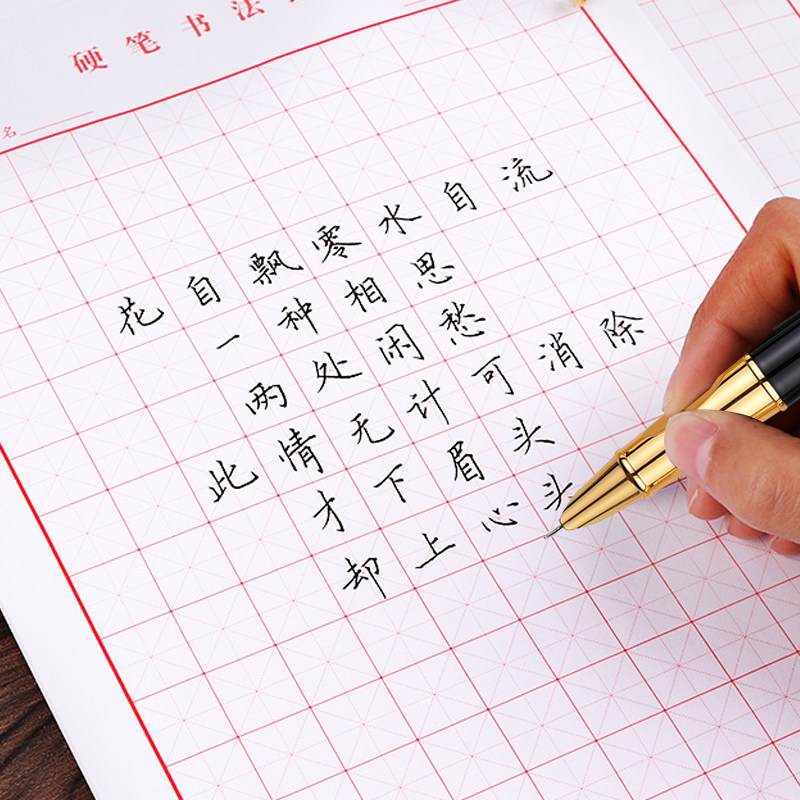 硬笔书法
名
花自飘零水自流
一种相思
两处闲愁
此情无计可消除
才下眉头
却上心头